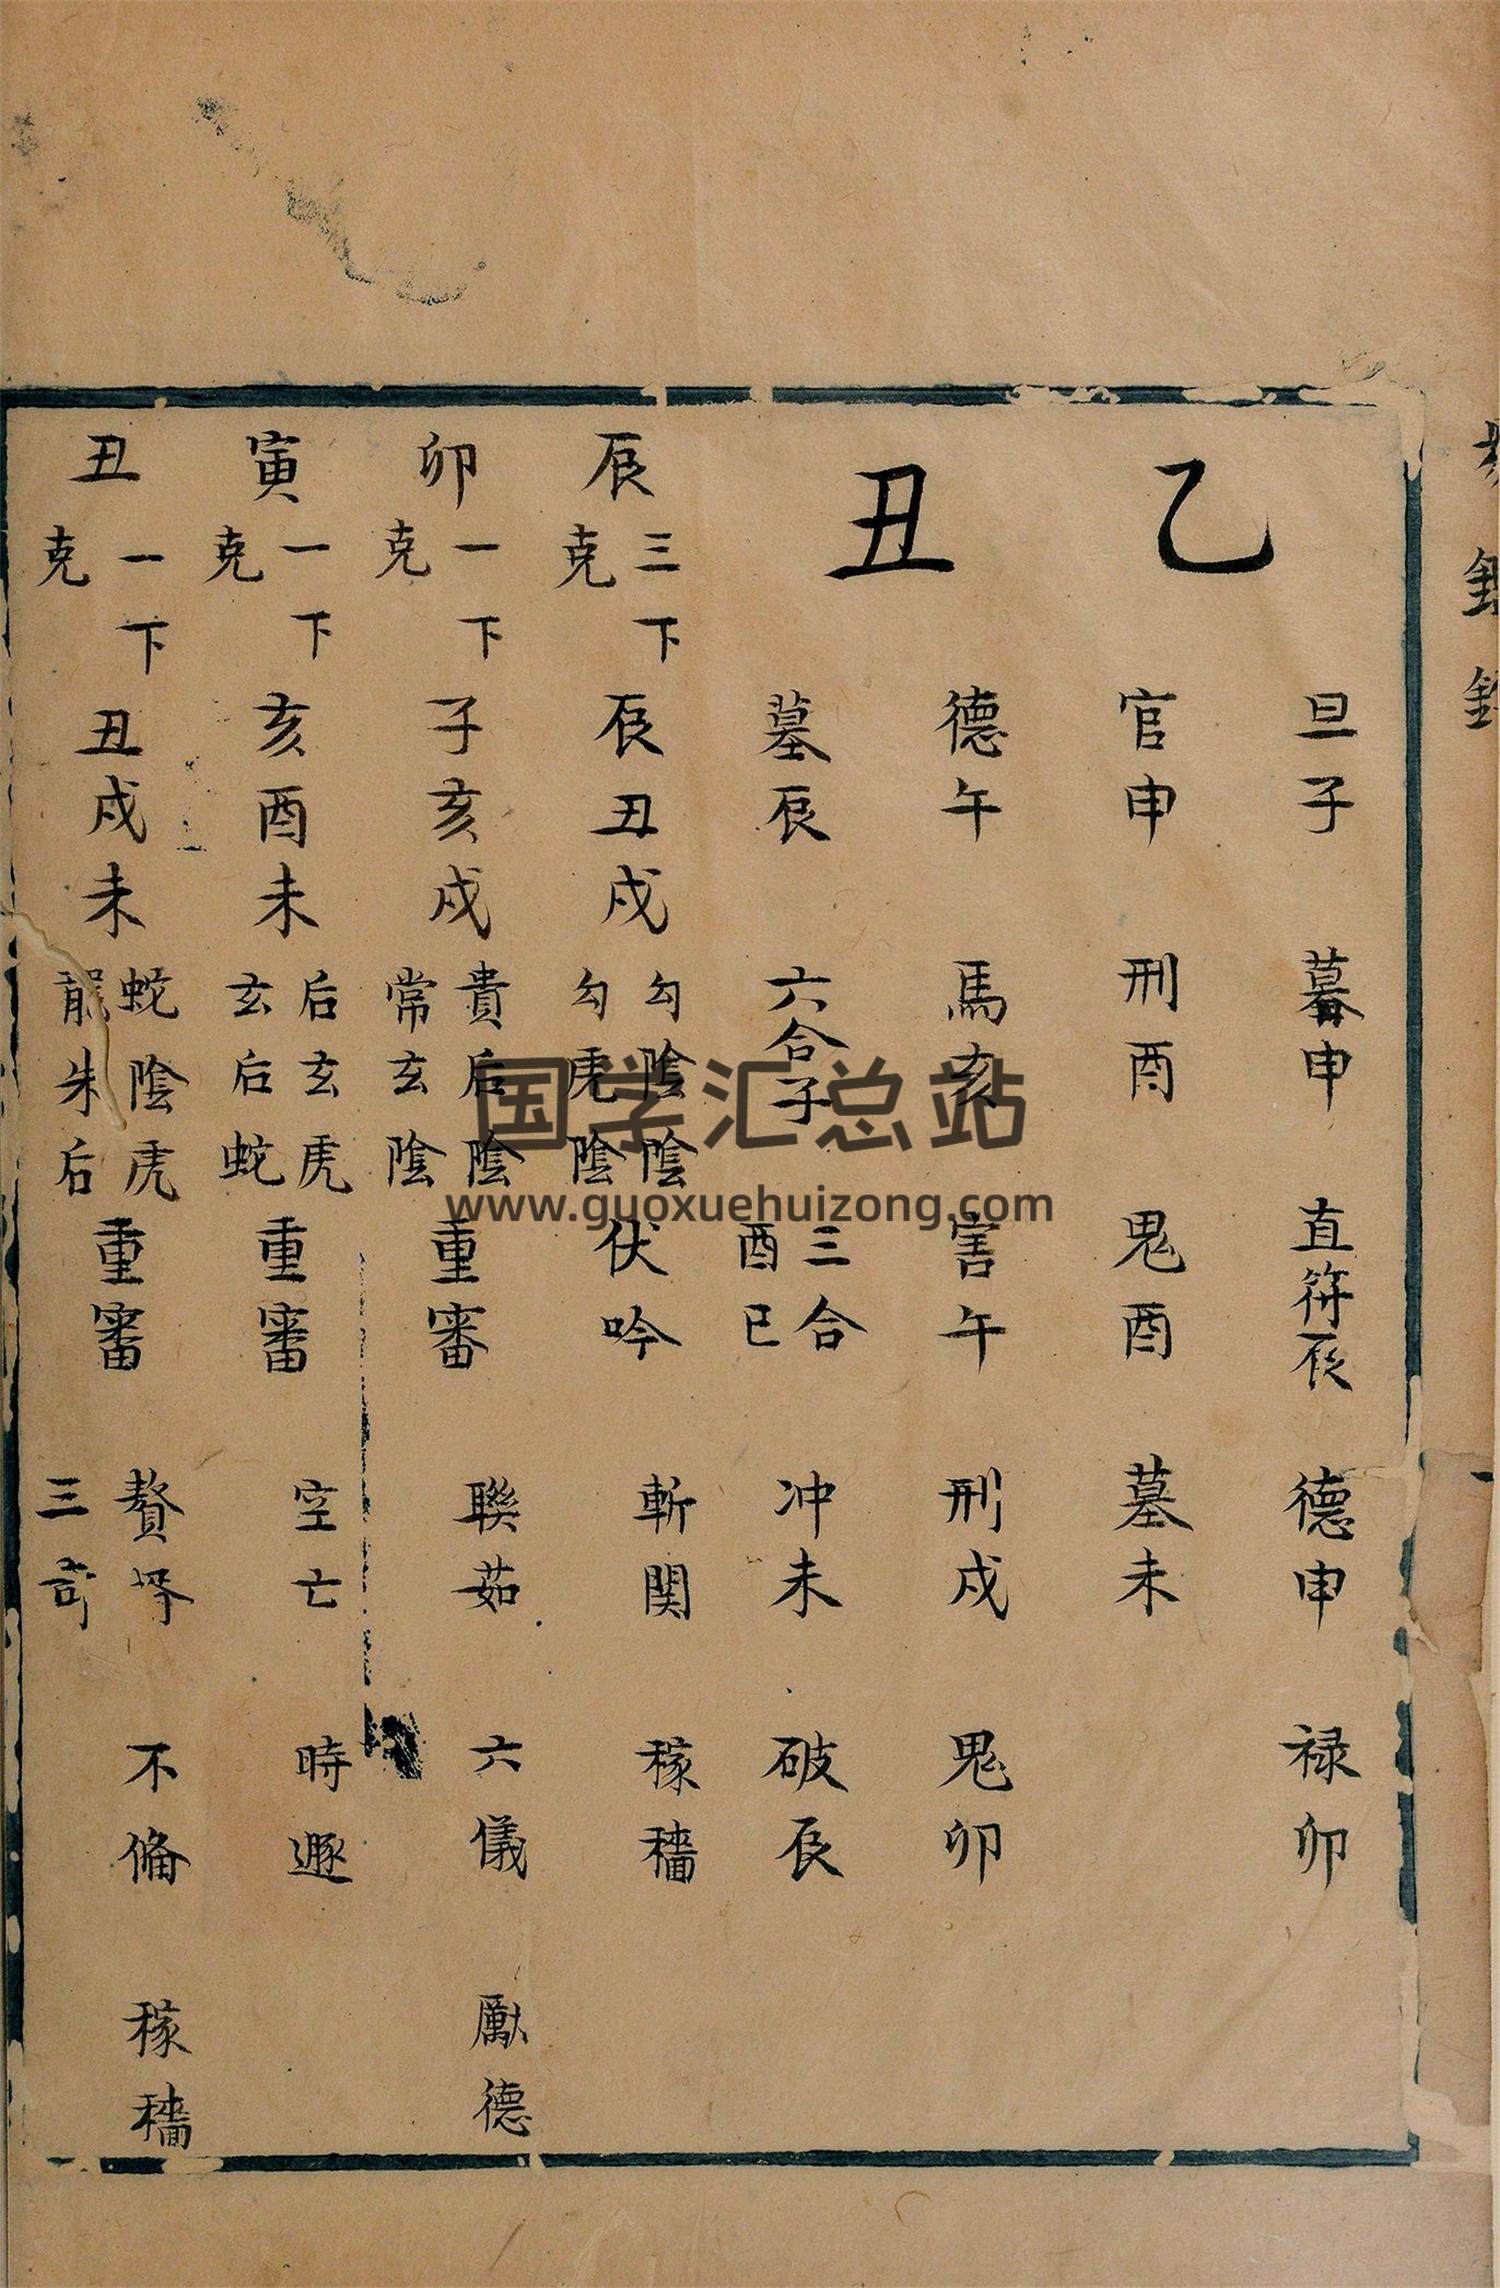 乙
旦子 暮申 直符辰 德申 禄卯
官申 刑酉 鬼酉 墓未
丑
德午 馬亥 害午 刑戌 鬼卯
墓辰 六合子 三合酉巳 冲未 破辰
辰 三下克 辰丑戌 勾陰陰 勾虎陰 伏吟 斬関 稼穡
卯 一下克 子亥戌 貴后陰 常玄陰 重審 聯茹 六儀 勵德
寅 一下克 亥酉未 后玄虎 玄后蛇 重審 空亡 時遯
丑 一下克 丑戌未 蛇陰虎 龍朱后 重審 贅壻 三奇 不俻 稼穡
国学汇总站
www.guoxuehuizong.com